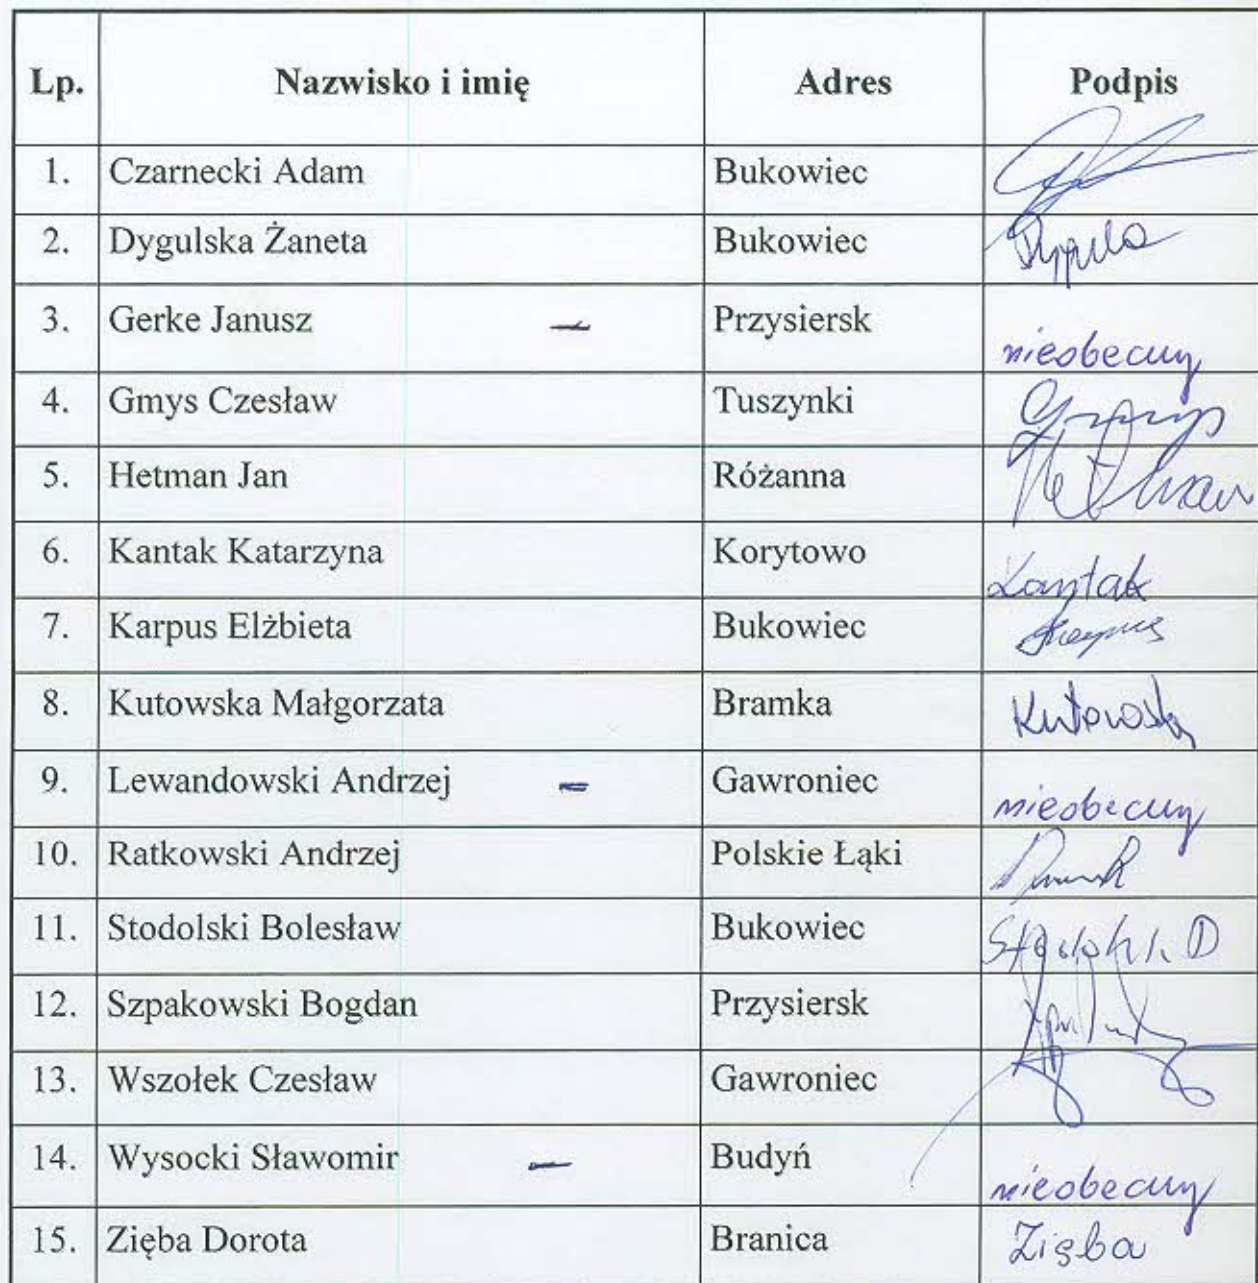 Lp. Nazwisko i imię Adres Podpis
1. Czarnecki Adam Bukowiec
2. Dygulska Żaneta Bukowiec
3. Gerke Janusz — Przysiersk nieobecny
4. Gmys Czesław Tuszynki Gmys
5. Hetman Jan Różanna Hetman
6. Kantak Katarzyna Korytowo Kantak
7. Karpus Elżbieta Bukowiec Karpus
8. Kutowska Małgorzata Bramka Kutowska
9. Lewandowski Andrzej = Gawroniec nieobecny
10. Ratkowski Andrzej Polskie Łąki
11. Stodolski Bolesław Bukowiec
12. Szpakowski Bogdan Przysiersk
13. Wszołek Czesław Gawroniec
14. Wysocki Sławomir — Budyń nieobecny
15. Zięba Dorota Branica Zięba